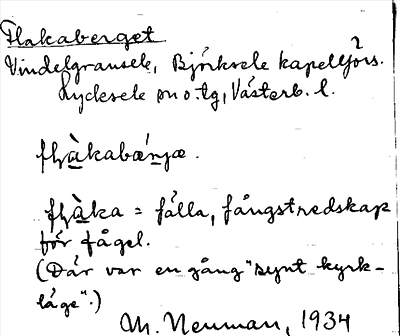 Flakaberget
Vindelgransele, Björksele kapellförs.
Lycksele sn o. tg, Västerb. l.
flyå̱kabæ̱̀njæ.
flyå̱ka = fälla, fångstredskap
för fågel.
(Där var en gång "synt kyrk-
läge".)
M. Neuman, 1934